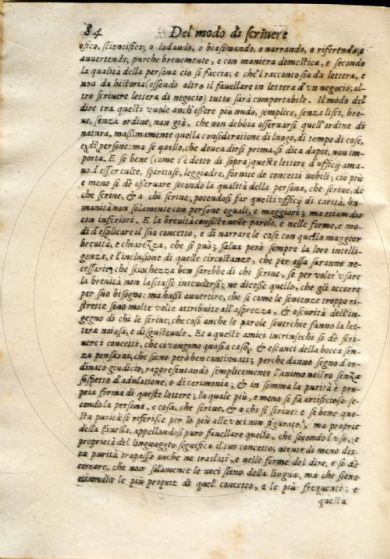 84 Del modo di scriuere
osico, scientifico; o lodando, o biasimando, o narrando, o riferendo, o
auuertendo; purche breuemente, e con maniera domestica, e secondo
la qualità della persona ciò si faccia; e che'l racconto sia da lettera, e
non da historia (essendo altro il fauellare in lettera d'vn negocio, al-
tro scriuere lettera di negocio) tutto sarà comportabile. Il modo del
dire tra questi vuole anch'essere piano, semplice, senza lisci, bre-
ue, senza ordine, non già, che non debbia osseruarsi quell'ordine di
natura, massimamente quella consideratione di luogo, di tempo, di cose,
e di persone; ma se quello, che douea dirsi prima, si dica dapoi, non im-
porta. E se bene (come s'è detto di sopra) queste lettere d'vfficy ama-
no d'esser culte, spiritose, leggiadre, fornite de concetti nobili; ciò più
e meno si dè osseruare secondo la qualità della persona, che scriue, di
che scriue, & a chi scriue, potendosi far questi vfficy di carità, hu-
manità non solamente con persone eguali, e maggiori; ma etiamdio
con inferiori. E la breuità consiste nelle parole, e nelle forme, e mo-
di d'esplicare il suo concetto, e di narrare le cose con quella maggior
breuità, e chiarezza, che si può; salua però sempre la loro intelli-
genza, e l'inclusione di quelle circostanze, che per essa saranno ne-
cessarie; che sciochezza ben sarebbe di chi scriue, se per voler vsare
la breuità non lasciasse intendersi; ne dicesse quello, che gli occorre
per suo bisogno: ma hassi auuertire, che si come le sentenze troppo ri-
strette sono molte volte attribuite all'asprezza, & oscurità dell'in-
gegno di chi le scriue; che così anche le parole souerchie fanno la let-
tera noiosa, e disgusteuole. Et a questi amici intrinsechi si dè scri-
uere i concetti, che ci vengono quasi a caso, & escanci della bocca sen-
za pensarui, che sieno però ben continuati; perche danno segno d'or-
dinato giudicio, rappresentando semplicemente l'animo nostro senza
sospetto d'adulatione, o di cerimonia; & in somma la purità è pro-
pria forma di queste lettere; la quale più, e meno si fà artificiosa se-
condo la persona, e cosa, che scriue, & a chi si scriue: e se bene que-
sta purità si riferisce per lo più alle voci non figurate; ma proprie
della fauella, appellandosi puro fauellare quello, che secondo l'vso, e
proprietà del linguaggio significa il suo concetto; niente di meno det-
ta purità trapassa anche ne traslati, e nelle forme del dire, e si dè
cercare, che non solamente le voci sieno della lingua, ma che sieno
etiamdio le più proprie di quel concetto, e le più frequenti; e
questa